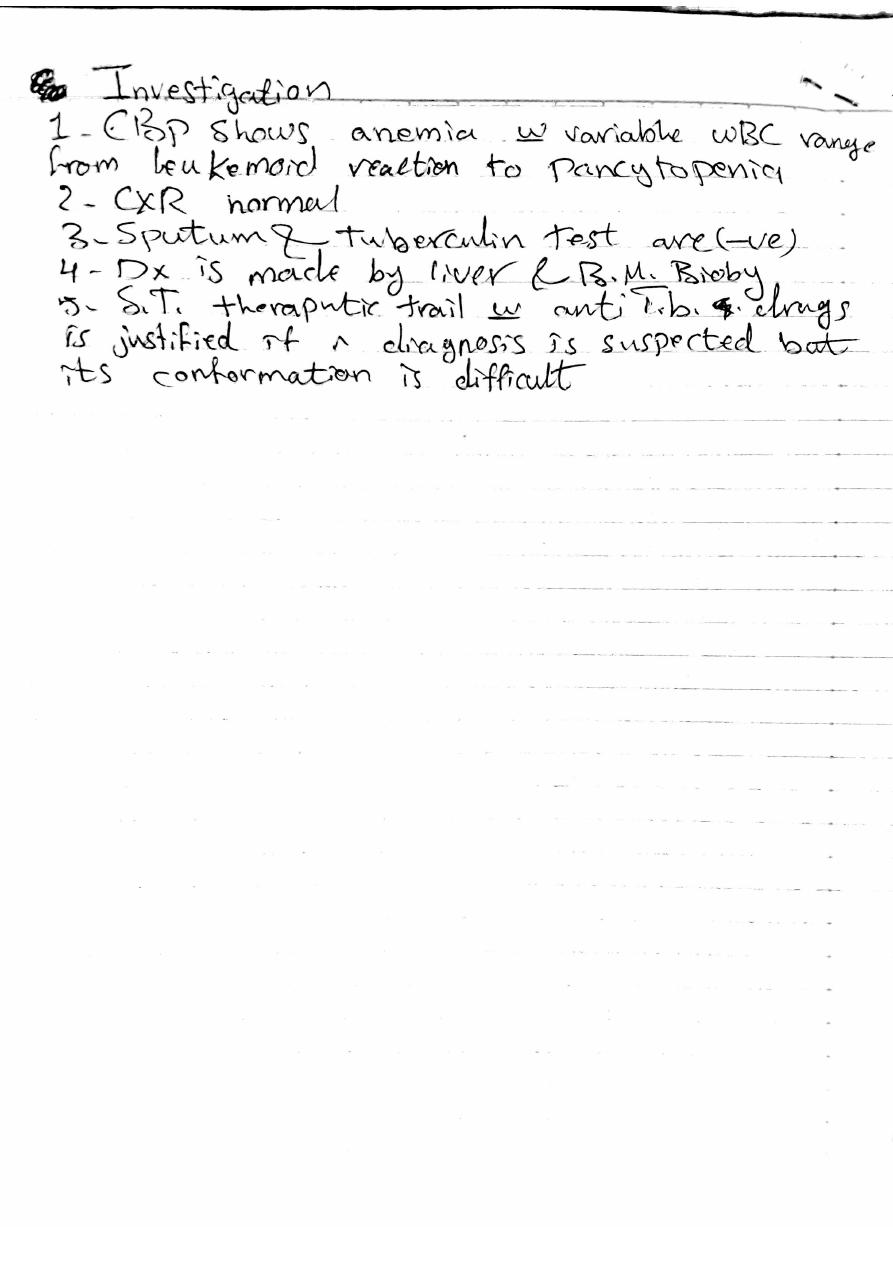 Investigation
1 - CBP shows anemia w variable WBC range
from leukemoid reaction to Pancytopenia
2 - CXR normal
3 - Sputum & tuberculin test are (-ve)
4 - Dx is made by liver & B.M. Bioby
5 - S.T. theraputic trail w anti T.b. drugs
is justified if ^ diagnosis is suspected but
its conformation is difficult